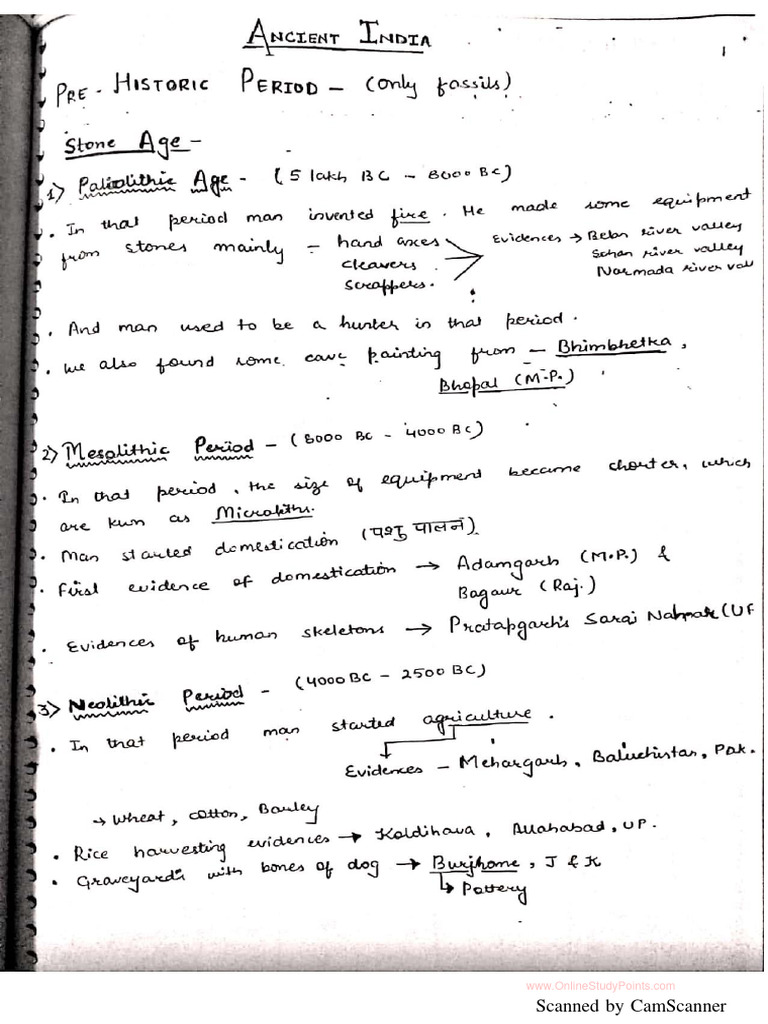 ANCIENT INDIA
1
PRE-HISTORIC PERIOD - (only fossils)
Stone Age -
1) Paleolithic Age - (5 lakh BC - 8000 BC)
• In that period man invented fire. He made some equipment
from stones mainly - hand axes
cleavers
scrappers.
Evidences → Belan river valley
Sohan river valley
Narmada river vall
• And man used to be a hunter in that period.
• We also found some cave painting from - Bhimbhetka,
Bhopal (M.P.)
2) Mesolithic Period - (8000 BC - 4000 BC)
• In that period, the size of equipment became shorter, which
are kwn as Microliths.
• Man started domestication (पशु पालन)
• First evidence of domestication → Adamgarh (M.P.) &
Bagaur (Raj.)
• Evidences of human skeletons → Pratapgarh's Sarai Nahar (UP
3) Neolithic Period - (4000 BC - 2500 BC)
• In that period man started agriculture.
Evidences - Mehargarh, Baluchistan, Pak.
→ Wheat, cotton, Barley
• Rice harvesting evidences → Koldihava, Allahabad, UP.
• Graveyards with bones of dog → Burjhome, J & K
↳ Pottery
www.OnlineStudyPoints.com
Scanned by CamScanner